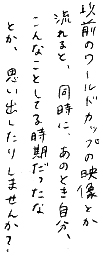 以前のワールドカップの映像とか
流れると、同時に、あのとき自分、
こんなことしてる時期だったな
とか、思い出したりしませんか?